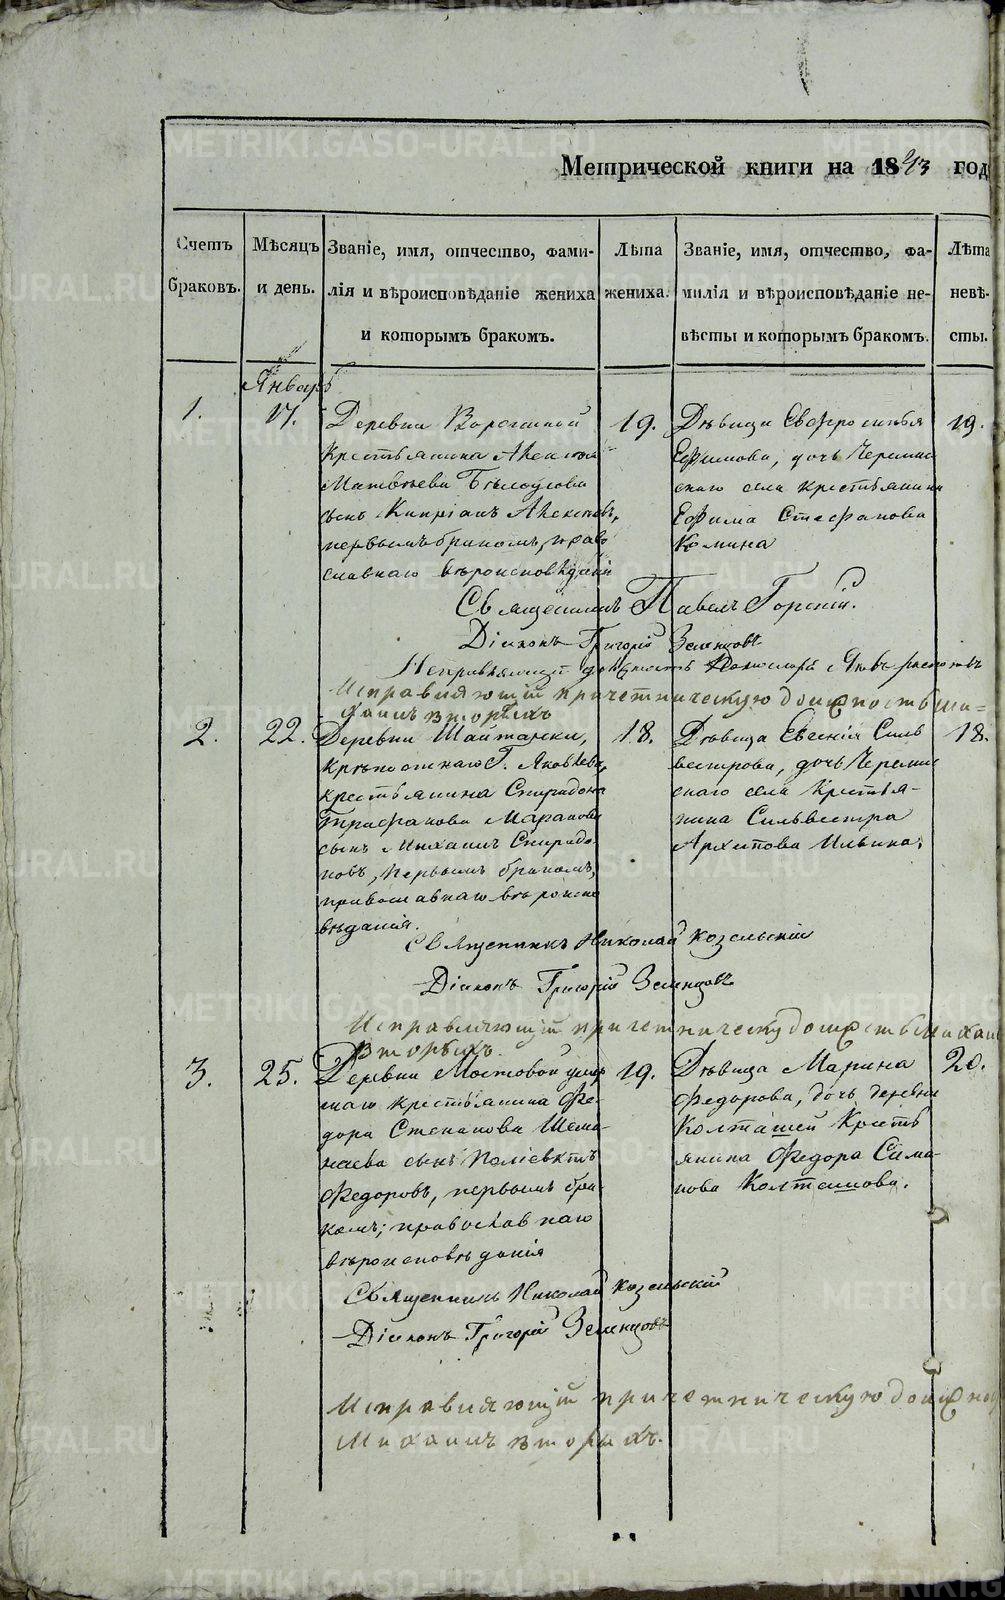 Метрической книги на 1843 год
Счетъ браковъ.
Мѣсяцъ и день.
Званіе, имя, отчество, фами-
лія и вѣроисповѣданіе жениха
и которымъ бракомъ.
Лѣта
жениха.
Званіе, имя, отчество, фа-
милія и вѣроисповѣданіе не-
вѣсты и которымъ бракомъ.
Лѣта
невѣ-
сты.
Январь
1.
17.
Деревни
крестьянина
Матвѣева Бѣлоусова
сынъ Кипріанъ
первымъ бракомъ, право
славнаго вѣроисповѣданія
19.
Дѣвица Евфросинья
Ефимова, дочь Черемис
скаго села крестьянина
Ефима Стефанова
Комина
19.
Священникъ Павелъ Горскій.
Діаконъ Григорій Зеленцовъ
Исправляющій должность
Исправляющій причетническую должность Ми-
хаилъ Вторыхъ
2.
22.
Деревни Шайтанки,
крѣпостнаго Г. Яковлева
крестьянина Спиридона
Трифанова
сынъ Михаилъ Спиридо
новъ, первымъ бракомъ,
православнаго вѣроиспо
вѣданія.
18.
Дѣвица Евгенія Силь
вестрова, дочь Черемис
скаго села крестья-
нина Сильвестра
Архипова Ильина.
18.
Священникъ Николай Козельскій
Діаконъ Григорій Зеленцовъ
Исправляющій причетническу должность Михаи
Вторыхъ.
3.
25.
Деревни Мостовой
крестьянина Фе-
дора Степанова
сынъ Поліевктъ
Федоровъ, первымъ бра-
комъ; православнаго
вѣроисповѣданія
19.
Дѣвица Марина
Федорова, дочь деревни
Колташей Кресть
янина Федора Сима-
нова Колташова.
20.
Священникъ Николай Козельскій
Діаконъ Григорій Зеленцовъ
Исправляющій причетническую должнос
Михаилъ Вторыхъ.
METRIKI.GASO-URAL.RU